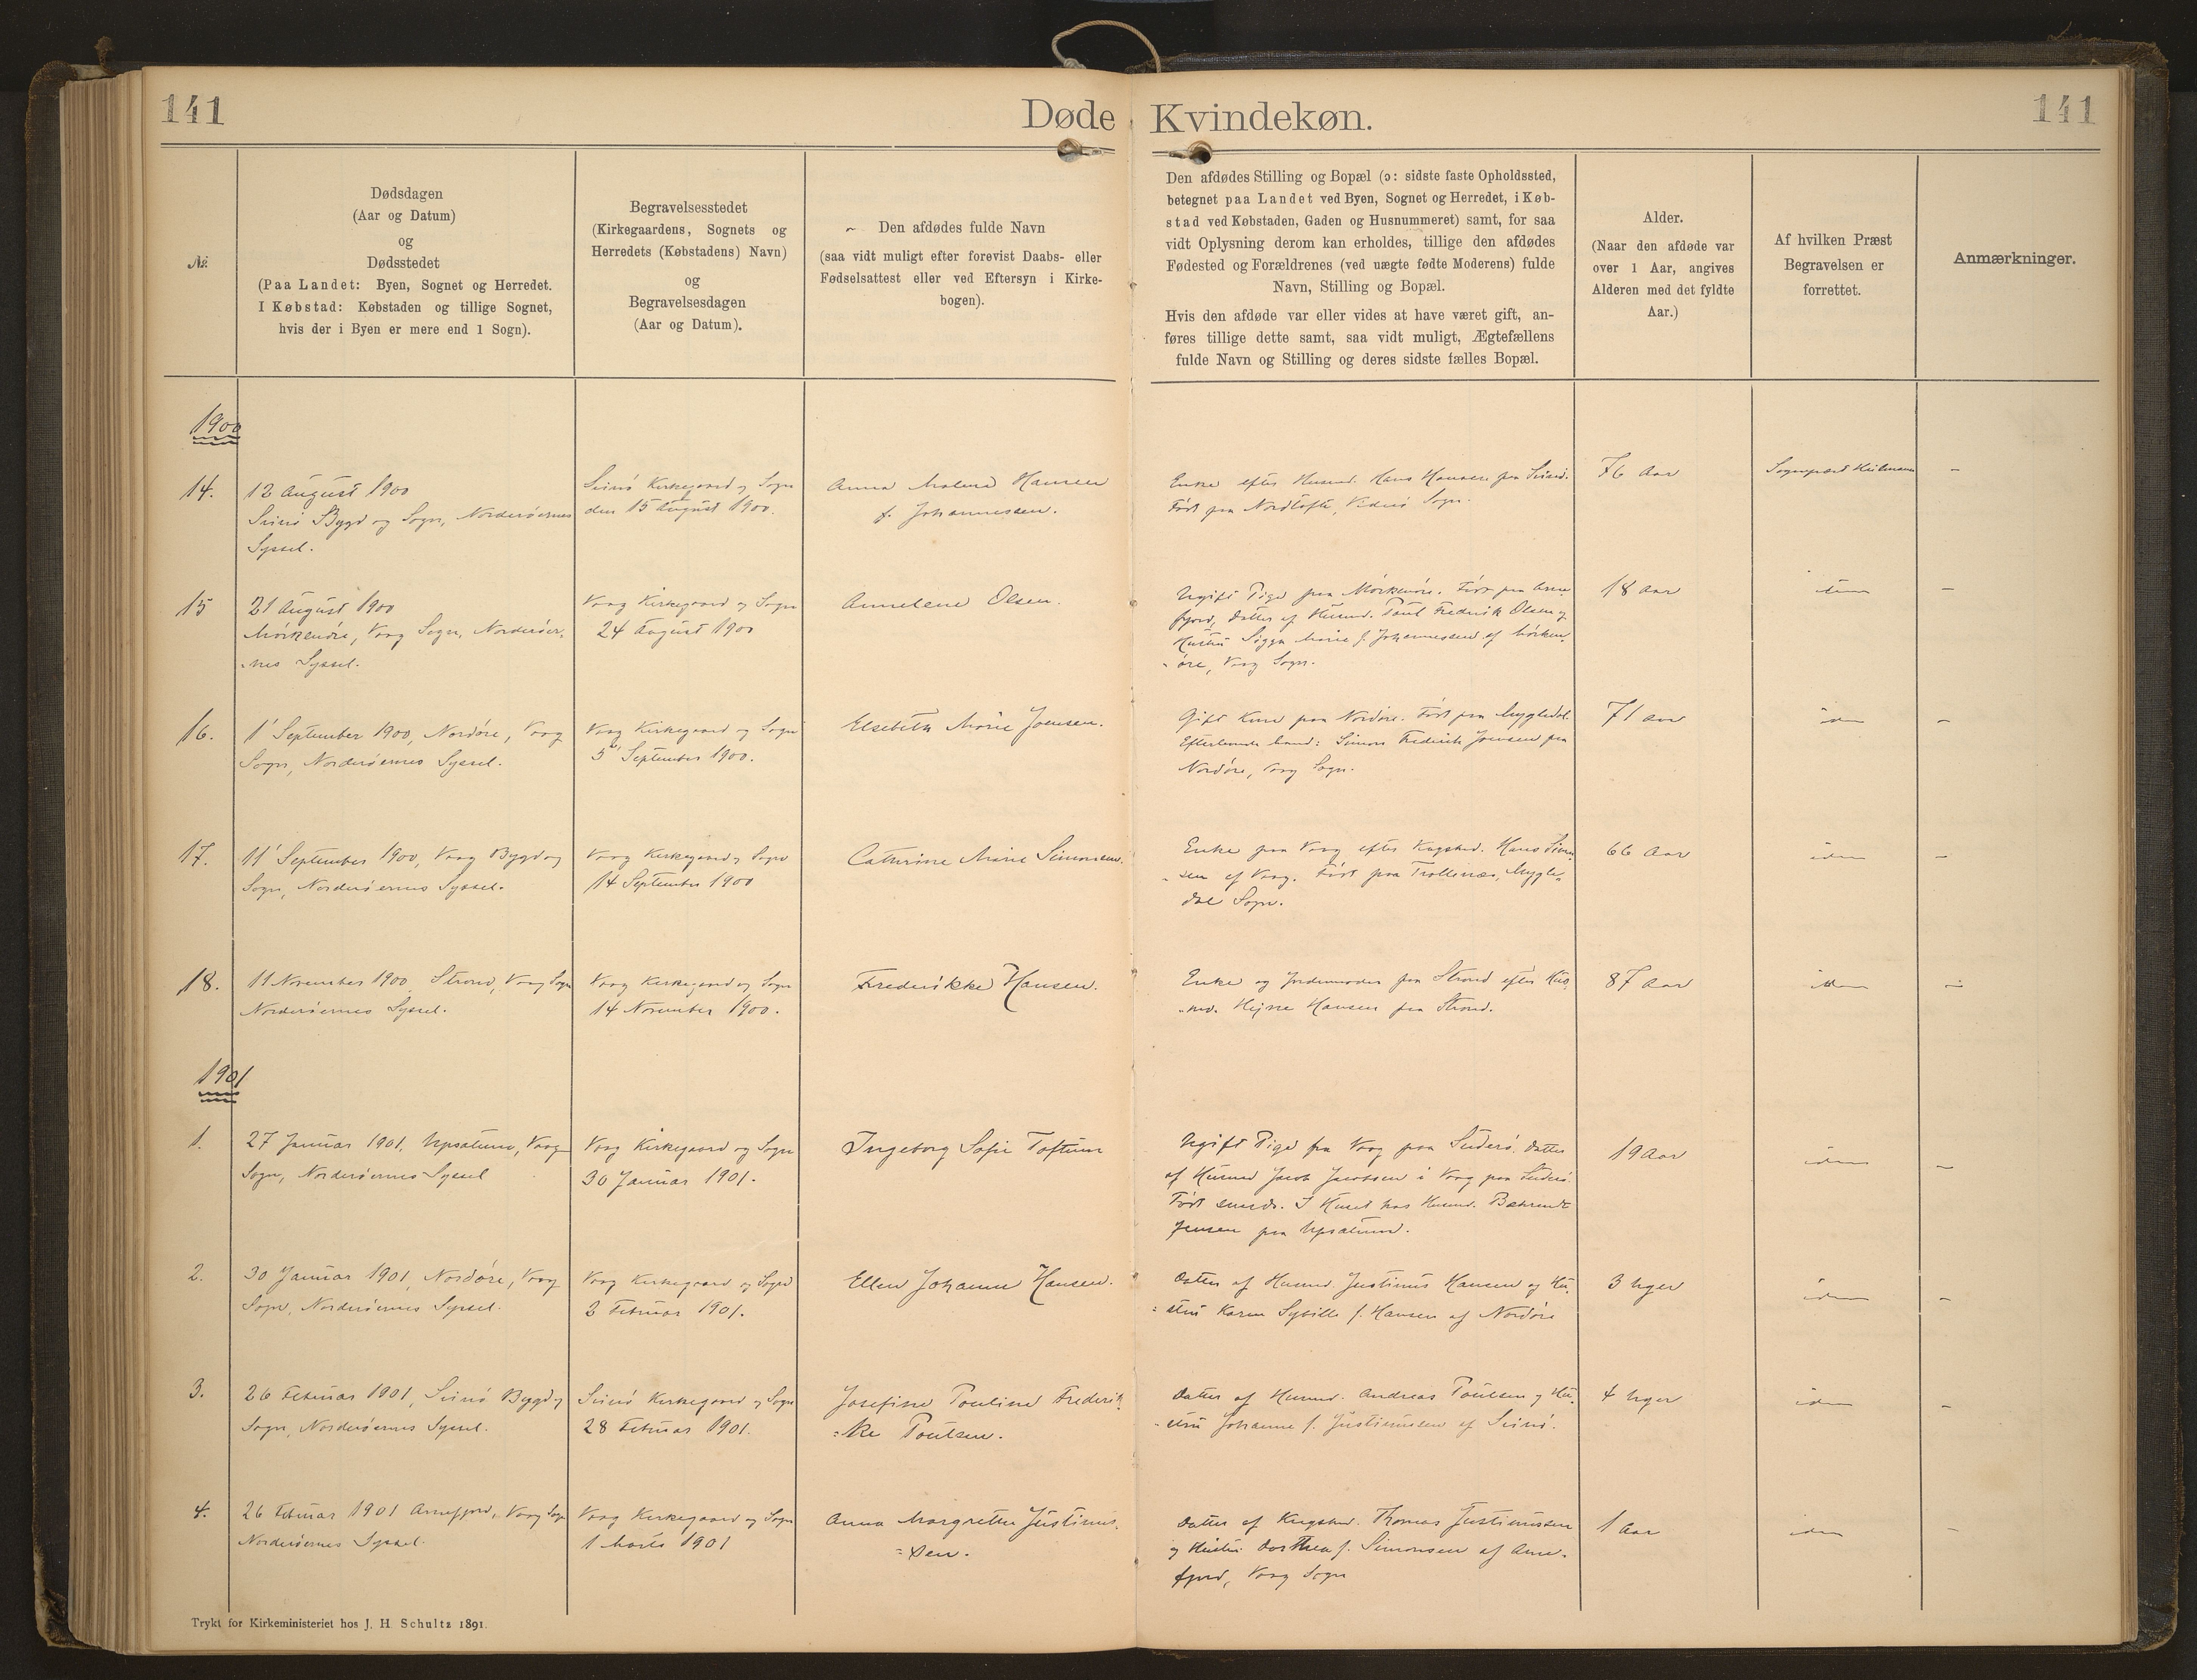 141
Døde Kvindekøn.
141
№.
Dødsdagen
(Aar og Datum)
og
Dødsstedet
(Paa Landet: Byen, Sognet og Herredet.
I Købstad: Købstaden og tillige Sognet,
hvis der i Byen er mere end 1 Sogn).
Begravelsesstedet
(Kirkegaardens, Sognets og
Herredets (Købstadens) Navn)
og
Begravelsesdagen
(Aar og Datum).
Den afdødes fulde Navn
(saa vidt muligt efter forevist Daabs- eller
Fødselsattest eller ved Eftersyn i Kirke-
bogen).
Den afdødes Stilling og Bopæl (ɔ: sidste faste Opholdssted,
betegnet paa Landet ved Byen, Sognet og Herredet, i Køb-
stad ved Købstaden, Gaden og Husnummeret) samt, for saa
vidt Oplysning derom kan erholdes, tillige den afdødes
Fødested og Forældrenes (ved uægte fødte Moderens) fulde
Navn, Stilling og Bopæl.
Hvis den afdøde var eller vides at have været gift, an-
føres tillige dette samt, saa vidt muligt, Ægtefællens
fulde Navn og Stilling og deres sidste fælles Bopæl.
Alder.
(Naar den afdøde var
over 1 Aar, angives
Alderen med det fyldte
Aar.)
Af hvilken Præst
Begravelsen er
forrettet.
Anmærkninger.
1900
14.
12 August 1900
Svinø Bygd og Sogn, Norderøernes
Syssel.
Svinø Kirkegaard og Sogn
den 15 August 1900.
Anna Malene Hansen
f. Johannessen.
Enke efter Husmd. Hans Hansen fra Svinø.
Født paa Nordtofte, Viderø Sogn.
76 Aar
Sognepræst Heilmann
-
15
21 August 1900
Mørkenøre, Vaag Sogn, Norderøer-
-nes Syssel.
Vaag Kirkegaard og Sogn
24 August 1900
Annelene Olsen.
Ugift Pige paa Mørkenøre. Født paa Arne-
fjord, Datter af Husmd. Poul Frederik Olsen og
Hustru Sigga Marie f. Johannessen af Mørken-
-øre, Vaag Sogn.
18 Aar
idem
-
16.
1' September 1900, Nordøre, Vaag
Sogn, Norderøernes Syssel.
Vaag Kirkegaard og Sogn
5' September 1900.
Elsebeth Marie Joensen.
Gift Kone paa Nordøre. Født paa Mygledal.
Efterlevende Mand: Simon Frederik Joensen paa
Nordøre, Vaag Sogn.
71 Aar
idem
-
17.
11' September 1900, Vaag Bygd og
Sogn, Norderøernes Syssel.
Vaag Kirkegaard og Sogn
14 September 1900
Cathrine Marie Simonsen.
Enke paa Vaag efter Kngsbd. Hans Simon-
-sen af Vaag. Født paa Trøllenæs, Mygle-
dal Sogn.
66 Aar
idem
-
18.
11 November 1900, Strond, Vaag Sogn
Norderøernes Syssel.
Vaag Kirkegaard og Sogn
14 November 1900.
Frederikke Hansen.
Enke og Jordemoder fra Strond efter Hus-
-md. Hejne Hansen fra Strond.
87 Aar
idem
-
1901
1.
27 Januar 1901, Upsalum, Vaag
Sogn, Norderøernes Syssel
Vaag Kirkegaard og Sogn
30 Januar 1901.
Ingeborg Sofie Toftum
Ugift Pige fra Vaag paa Suderø. Datter
af Husmd Jacob Jacobsen i Vaag paa Suderø.
Født smsds. I Huset hos Husmd. Behrendt
Jensen paa Upsalum.
19 Aar
idem
-
2.
30 Januar 1901, Nordøre, Vaag
Sogn, Norderøernes Syssel.
Vaag Kirkegaard og Sogn
2 Februar 1901.
Ellen Johanne Hansen.
Datter af Husmd. Justinus Hansen og Hu-
=stru Karen Sybille f. Hansen af Nordøre
3 Uger
idem
-
3.
26 Februar 1901, Svinø Bygd og
Sogn, Norderøernes Syssel.
Svinø Kirkegaard og Sogn
28 Februar 1901.
Josefine Pouline Frederik-
=ke Poulsen.
Datter af Husmd. Andreas Poulsen og Hu-
-stru Johanne f. Justinussen af Svinø.
4 Uger
idem
-
4.
26 Februar 1901 Arnefjord, Vaag Sogn
Norderøernes Syssel.
Vaag Kirkegaard og Sogn
1 Marts 1901
Anna Margrethe Justinus-
=sen.
Datter af Kngsbd. Thomas Justinussen
og Hustru Dorthea f. Simonsen af Arne-
fjord, Vaag Sogn
1 Aar
idem
-
Trykt for Kirkeministeriet hos J. H. Schultz 1891.